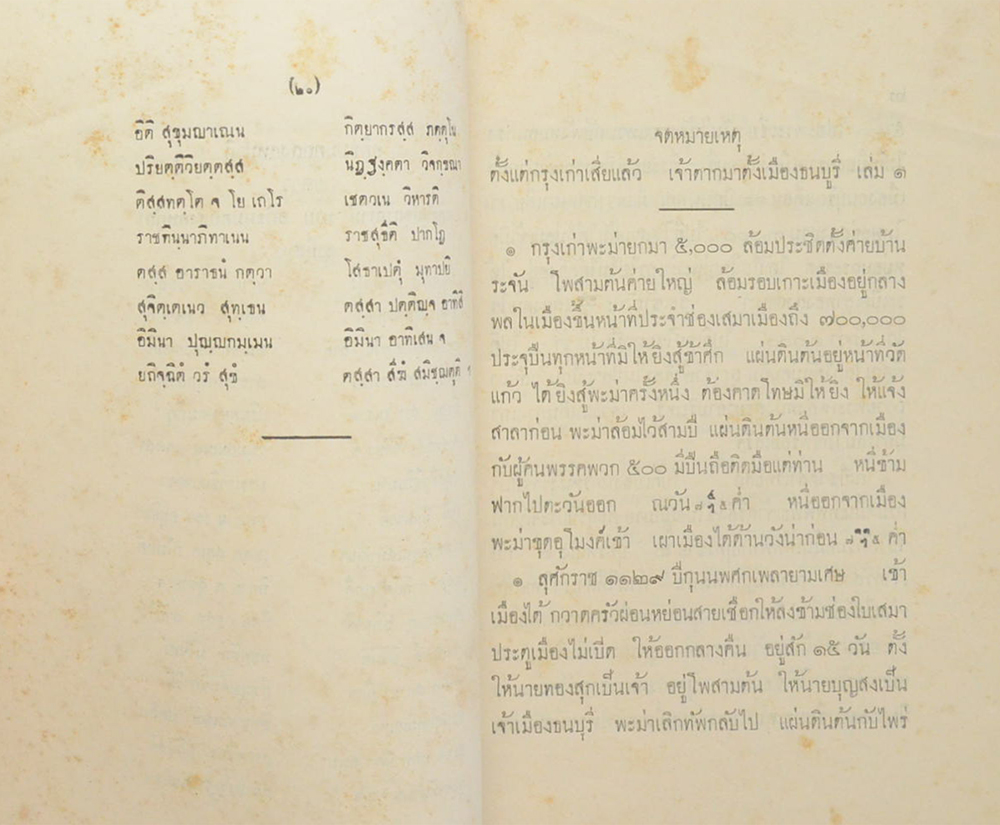 (๒๐)
อิติ สุขุมญาเณน กิตฺยากรสฺส
ปริยตฺติวิยตฺตสฺส นิฏฺฐงฺคตา
ติสฺสทตฺโต จ โย เถโร เชตวเน วิหารติ
ราชทินฺนาภิทาเนน ราชสุธีติ ปากโฏ
ตสฺส อาราธนํ กตฺวา โสธาเปตุํ
สุจิตฺเตเนว สุทฺเธน ตสฺสา ปตฺติญฺจ
อิมินา ปุญฺญกมฺเมน อิมินา อาทิเสน จ
ยถิจฺฉิตํ วรํ สุขํ ตสฺสา
จดหมายเหตุ
ตั้งแต่กรุงเก่าเสียแล้ว เจ้าตากมาตั้งเมืองธนบุรี เล่ม ๑
๑ กรุงเก่าพะม่ายกมา ๕,๐๐๐ ล้อมประชิดตั้งค่ายบ้าน
ระจัน โพสามต้นค่ายใหญ่ ล้อมรอบเกาะเมืองอยู่กลาง
พลในเมืองขึ้นหน้าที่ประจำช่องเสมาเมืองถึง ๗๐๐,๐๐๐
ประจุปืนทุกหน้าที่มิให้ยิงสู้ข้าศึก แผ่นดินต้นอยู่หน้าที่วัด
แก้ว ได้ยิงสู้พะม่าครั้งหนึ่ง ต้องคาดโทษมิให้ยิง ให้แจ้ง
สาลาก่อน พะม่าล้อมไว้สามปี แผ่นดินต้นหนีออกจากเมือง
กับผู้คนพรรคพวก ๕๐๐ มีปืนถือติดมือแต่ท่าน หนีข้าม
ฟากไปตะวันออก ณวัน ค่ำ หนีออกจากเมือง
พะม่าขุดอุโมงค์เข้า เผาเมืองได้ด้านวังน่าก่อน ค่ำ
๑ ลุศักราช ๑๑๒๙ ปีกุนนพศกเพลายามเศษ เข้า
เมืองได้ กวาดครัวผ่อนหย่อนสายเชือกให้ลงข้ามช่องใบเสมา
ประตูเมืองไม่เปิด ให้ออกกลางคืน อยู่สัก ๑๕ วัน ตั้ง
ให้นายทองสุกเป็นเจ้า อยู่โพสามต้น ให้นายบุญสงเป็น
เจ้าเมืองธนบุรี พะม่าเลิกทัพกลับไป แผ่นดินต้นกับไพร่